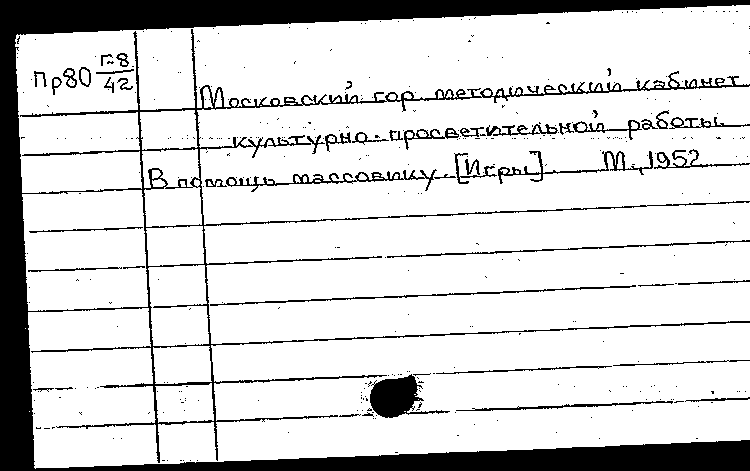 Пр80 Г-8/42
Московский гор. методический кабинет
культурно-просветительной работы.
В помощь массовику. [Игры]. М., 1952